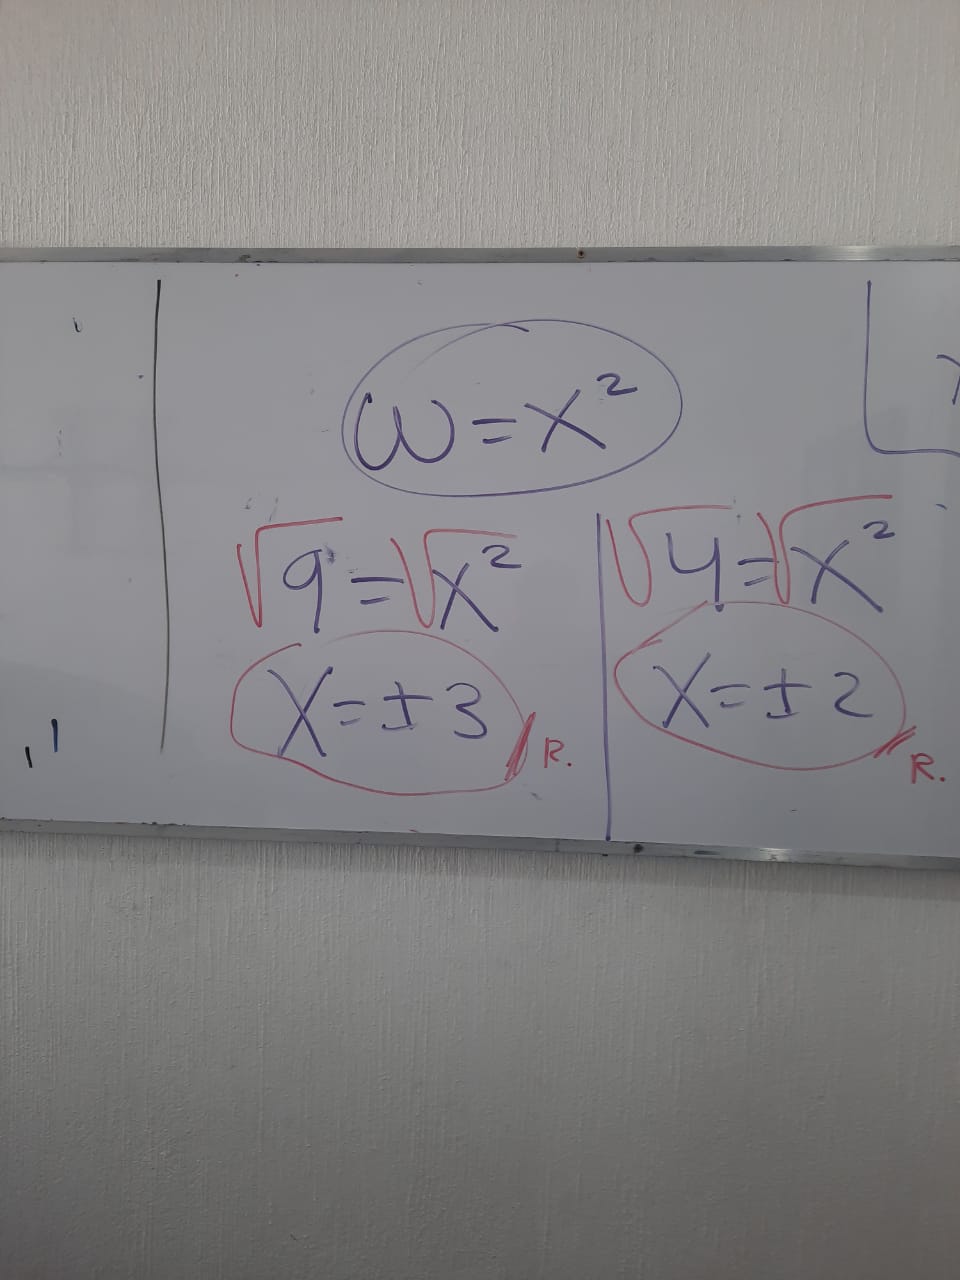 ω=x²
√9=√x²
x=±3 R.
√4=√x²
x=±2 R.